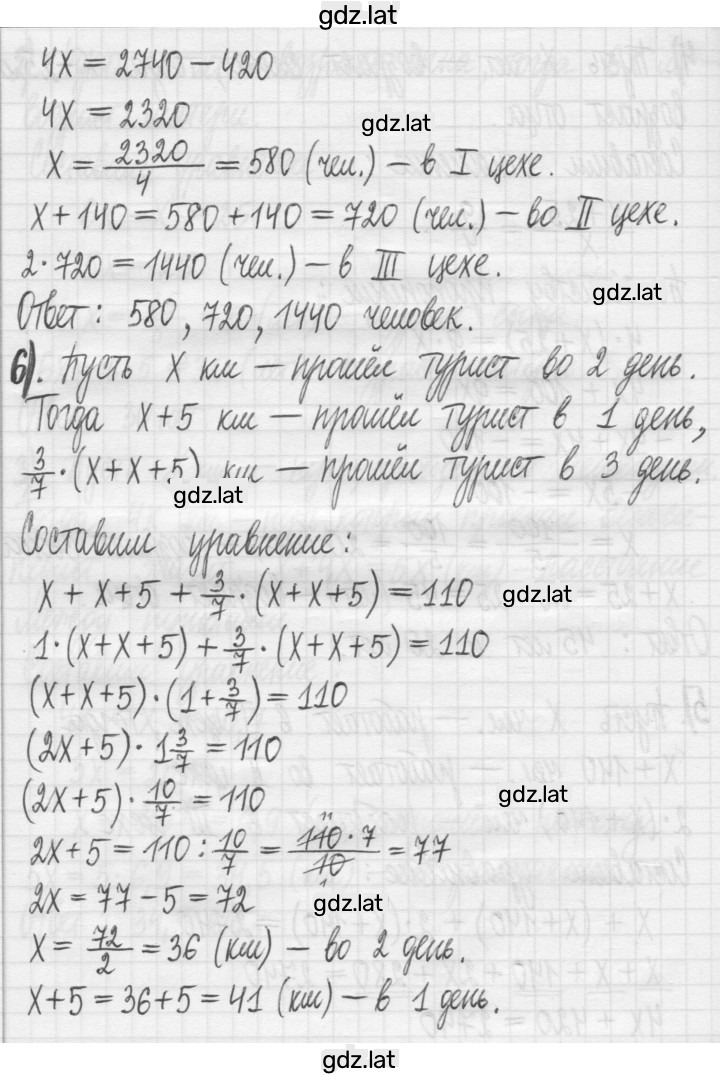 gdz.lat
4x = 2740 − 420
4x = 2320
gdz.lat
x = 2320/4 = 580 (чел.) − в I цехе.
x + 140 = 580 + 140 = 720 (чел.) − во II цехе.
2·720 = 1440 (чел.) − в III цехе.
gdz.lat
Ответ: 580, 720, 1440 человек.
6). Пусть x км − прошёл турист во 2 день.
Тогда x+5 км − прошёл турист в 1 день,
3/7·(x+x+5) км − прошёл турист в 3 день.
gdz.lat
Составим уравнение:
x + x + 5 + 3/7·(x+x+5) = 110
gdz.lat
1·(x+x+5) + 3/7·(x+x+5) = 110
(x+x+5)·(1+3/7) = 110
(2x+5)·1 3/7 = 110
(2x+5)·10/7 = 110
gdz.lat
2x+5 = 110 : 10/7 = 110·7/10 = 77
2x = 77 − 5 = 72
gdz.lat
x = 72/2 = 36 (км) − во 2 день.
x+5 = 36+5 = 41 (км) − в 1 день.
gdz.lat